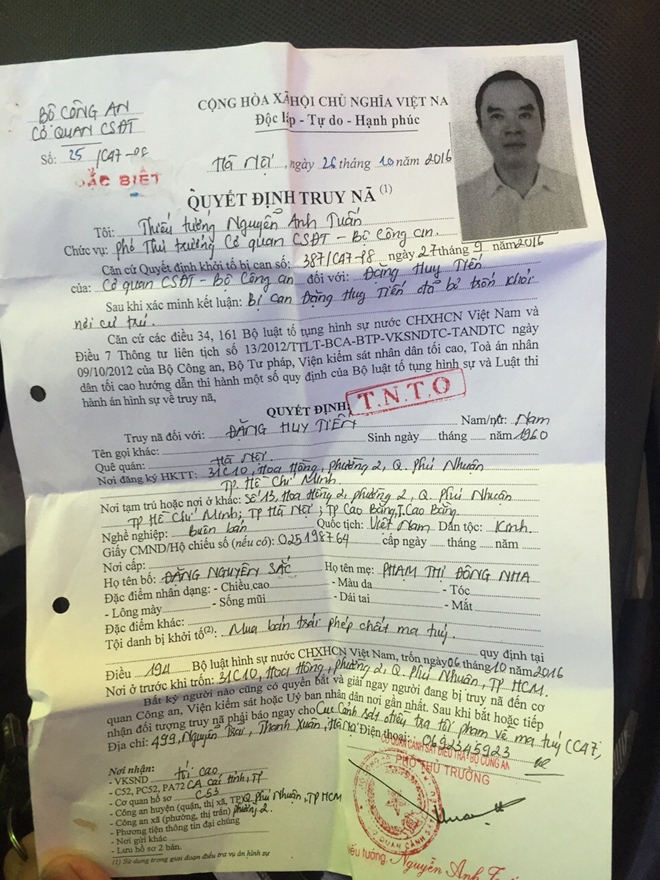 BỘ CÔNG AN
CƠ QUAN CSĐT
Số: 25 /C47-P8
ĐẶC BIỆT
CỘNG HÒA XÃ HỘI CHỦ NGHĨA VIỆT NA
Độc lập - Tự do - Hạnh phúc
Hà Nội, ngày 26 tháng 10 năm 2016
QUYẾT ĐỊNH TRUY NÃ (1)
Tôi: Thiếu tướng Nguyễn Anh Tuấn
Chức vụ: Phó Thủ trưởng Cơ quan CSĐT - Bộ Công an.
Căn cứ Quyết định khởi tố bị can số: 387/C47-P8 ngày 27 tháng 9 năm 2016
của: Cơ quan CSĐT - Bộ Công an đối với: Đặng Huy Tiến
Sau khi xác minh kết luận: Bị can Đặng Huy Tiến đã bỏ trốn khỏi
nơi cư trú.
Căn cứ các điều 34, 161 Bộ luật tố tụng hình sự nước CHXHCN Việt Nam và
Điều 7 Thông tư liên tịch số 13/2012/TTLT-BCA-BTP-VKSNDTC-TANDTC ngày
09/10/2012 của Bộ Công an, Bộ Tư pháp, Viện kiểm sát nhân dân tối cao, Toà án nhân
dân tối cao hướng dẫn thi hành một số quy định của Bộ luật tố tụng hình sự và Luật thi
hành án hình sự về truy nã,
QUYẾT ĐỊNH:
T.N.T.O
Truy nã đối với: ĐẶNG HUY TIẾN Nam/nữ: Nam
Tên gọi khác: Sinh ngày tháng năm 1960
Quê quán: Hà Nội.
Nơi đăng ký HKTT: 31C10, Hoa Hồng, phường 2, Q. Phú Nhuận
TP. Hồ Chí Minh.
Nơi tạm trú hoặc nơi ở khác: Số 13, Hoa Hồng 2, phường 2, Q. Phú Nhuận
TP Hồ Chí Minh; TP Hà Nội; TP Cao Bằng, T. Cao Bằng.
Nghề nghiệp: buôn bán Quốc tịch: Việt Nam Dân tộc: Kinh.
Giấy CMND/Hộ chiếu số (nếu có): 025198764 cấp ngày tháng năm
Nơi cấp:
Họ tên bố: ĐẶNG NGUYÊN SẮC Họ tên mẹ: PHẠM THỊ ĐÔNG NHA
Đặc điểm nhân dạng: - Chiều cao - Màu da - Tóc
- Lông mày - Sống mũi - Dái tai - Mắt
Đặc điểm khác:
Tội danh bị khởi tố(2): Mua bán trái phép chất ma túy. quy định tại
Điều 194 Bộ luật hình sự nước CHXHCN Việt Nam, trốn ngày 06 tháng 10 năm 2016
Nơi ở trước khi trốn: 31C10, Hoa Hồng, phường 2, Q. Phú Nhuận, TP HCM.
Bất kỳ người nào cũng có quyền bắt và giải ngay người đang bị truy nã đến cơ
quan Công an, Viện kiểm sát hoặc Uỷ ban nhân dân nơi gần nhất. Sau khi bắt hoặc tiếp
nhận đối tượng truy nã phải báo ngay cho Cục Cảnh sát điều tra tội phạm về ma túy (C47,
Địa chỉ: 499, Nguyễn Trãi, Thanh Xuân, Hà Nội Điện thoại: 0692345923
CƠ QUAN CẢNH SÁT ĐIỀU TRA - BỘ CÔNG AN
PHÓ THỦ TRƯỞNG
Nơi nhận:
- VKSND tối cao
- C52, PC52, PA72 CA các tỉnh, TP
- Cơ quan hồ sơ C53
- Công an huyện (quận, thị xã, TP) Q. Phú Nhuận, TP HCM
- Công an xã (phường, thị trấn) phường 2.
- Phương tiện thông tin đại chúng
- Nơi gửi khác
- Lưu hồ sơ 2 bản.
(1) Sử dụng trong giai đoạn điều tra vụ án hình sự
Nguyễn Anh